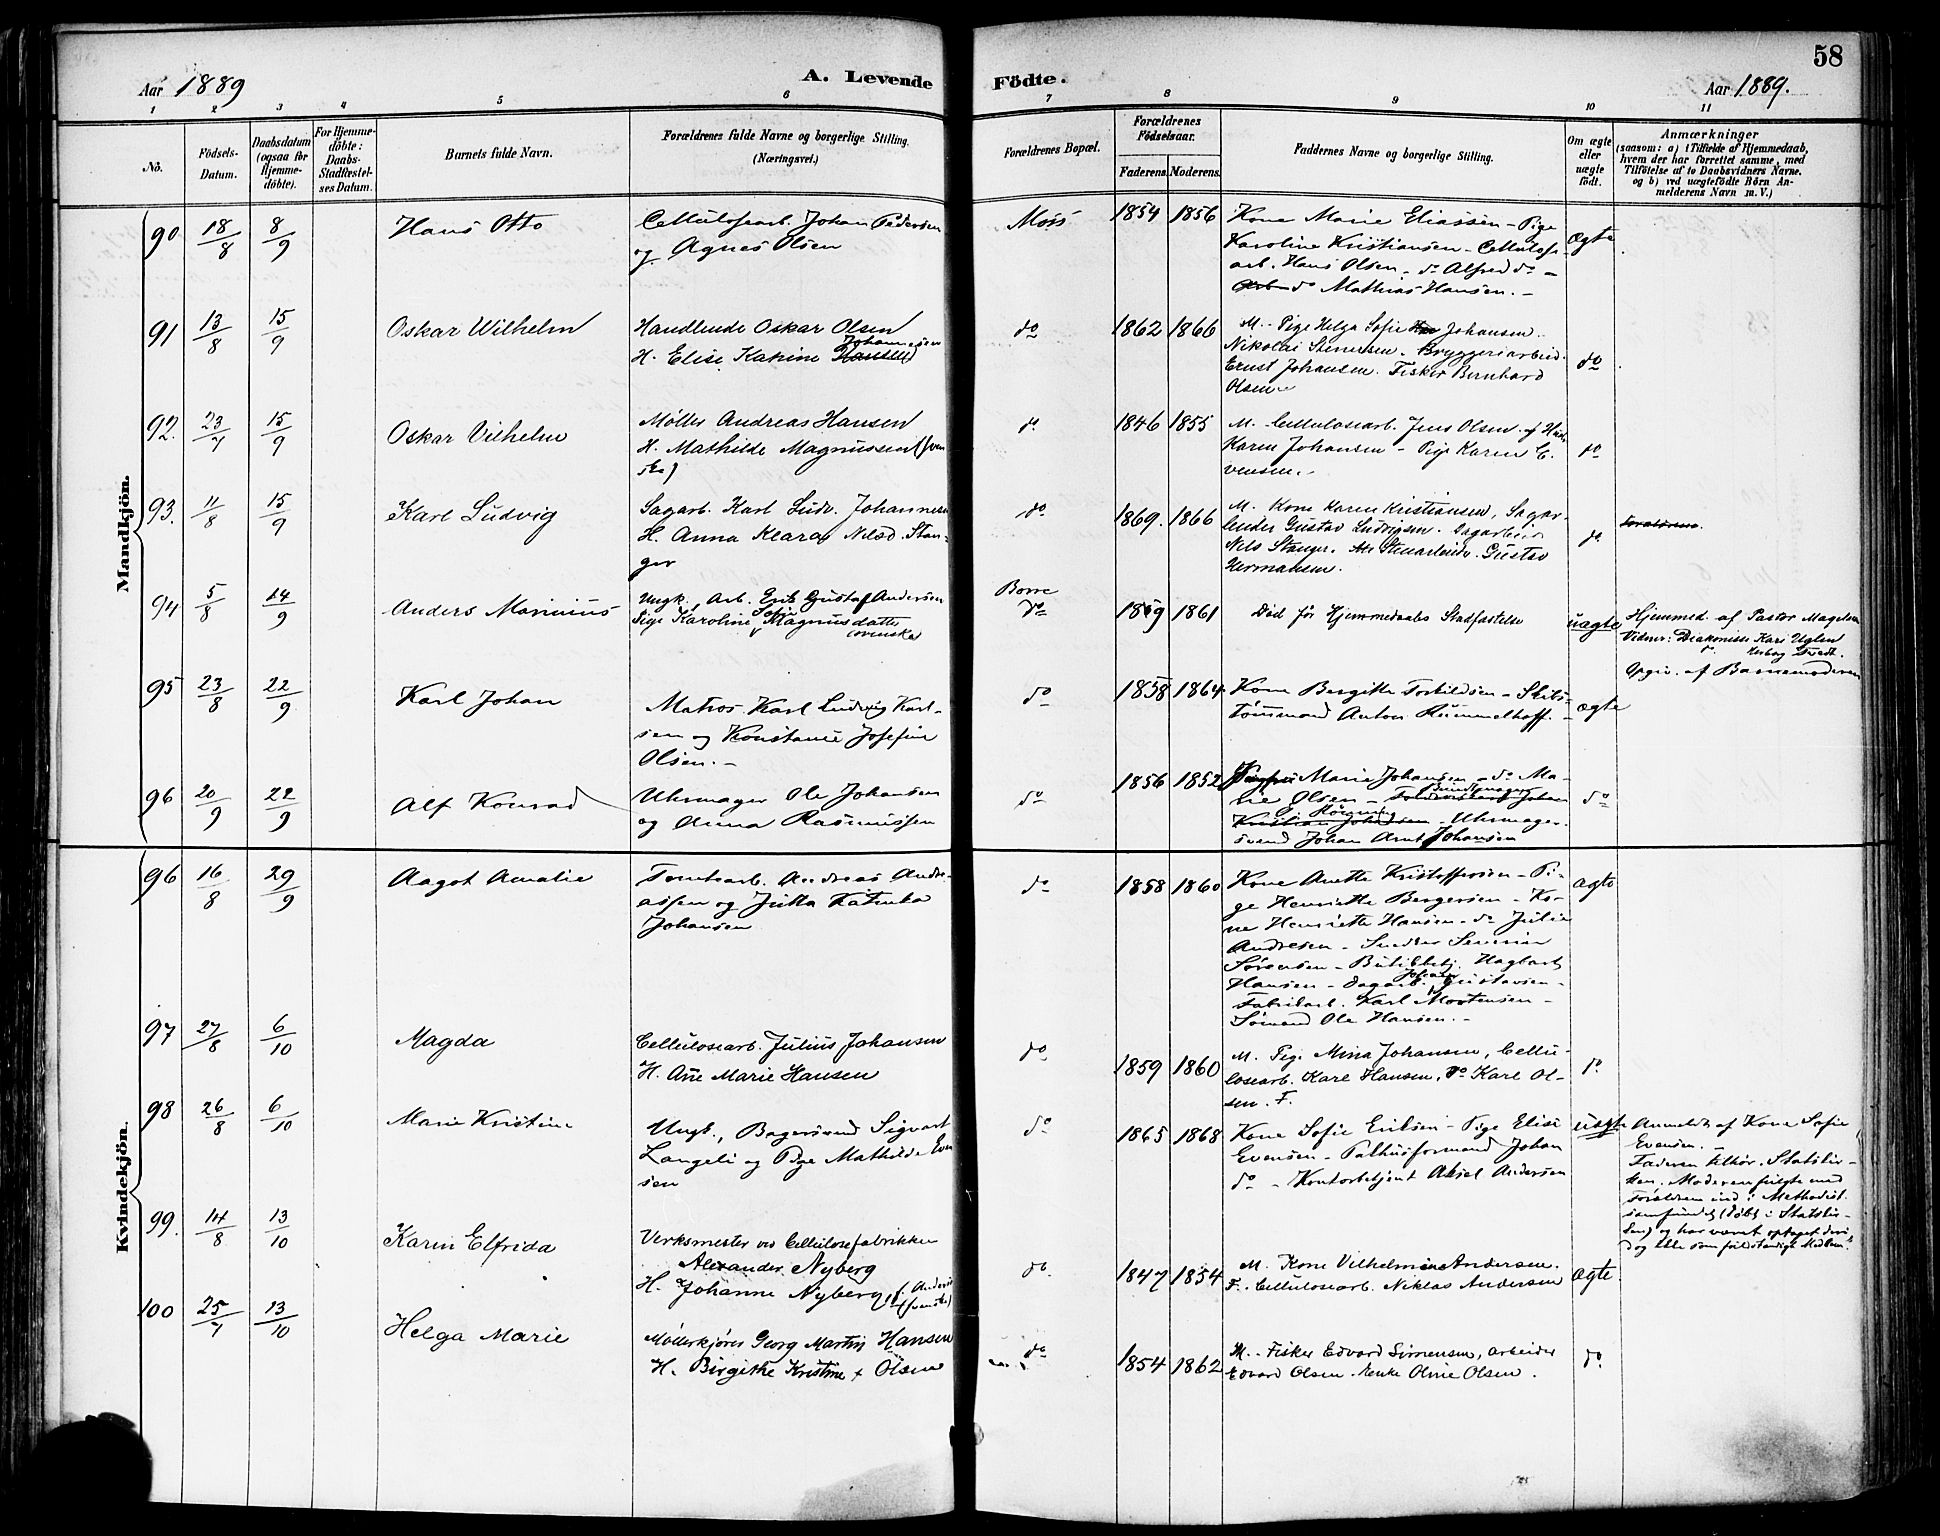 58
Aar 1889
A. Levende Födte.
Aar 1889.
1 2 3 4 5 6 7 8 9 10 11
No.
Födsels-
Datum.
Daabsdatum
(ogsaa for
Hjemme-
döbte).
For Hjemme-
döbte:
Daabs-
Stadfæstel-
ses Datum.
Barnets fulde Navn.
Forældrenes fulde Navne og borgerlige Stilling.
(Næringsvei.)
Forældrenes Bopæl.
Forældrenes
Födselsaar.
Faderens. Moderens.
Faddernes Navne og borgerlige Stilling.
Om ægte
eller
uægte
födt.
Anmærkninger
(saasom: a) i Tilfælde af Hjemmedaab,
hvem der har forrettet samme, med
Tilföielse af to Daabsvidners Navne.
og b) ved uægtefödte Börn An-
melderens Navn m. V.)
Mandkjön.
90 18/8 8/9 Hans Otto
Cellulosearb. Johan Pedersen
og Agnes Olsen
Moss 1854 1856
Kone Marie Eliassen - Pige
Karoline Kristiansen - Cellulose-
arb. Hans Olsen - do Alfred do -
do Mathias Hansen. -
Ægte
91 13/8 15/9 Oskar Wilhelm
Handlende Oskar Olsen
Johannesen
H. Elise Katrine Hansen
do 1862 1866
M. Pige Helga Sofie Johansen.
Nikolai Stenersen. Bryggeriarbeid.
Ernst Johansen. Fisker Bernhard
Olsen
do
92. 23/7 15/9 Oskar Vilhelm
Møller Andreas Hansen
H. Mathilde Magnussen (sven
ske)
do 1846 1855
M. Cellulosearb. Jens Olsen af
Karen Johansen - Pige Karen E.
vensen. -
do
93. 11/8 15/9 Karl Ludvig
Sagarb. Karl Ludv. Johannesen
H. Anna Klara Nilsd. Stan-
ger
do 1869. 1866
M. Kone Karen Kristiansen, Sagar-
beider Gustav Ludvigsen. Sagarbeid
Nels Stanger. Stenarbeider Gustav
Hermansen.
do
Forældrene.
94 5/8 14/9 Anders Marinius
Ungk., Arb. Erik Gustaf Andersen
Sofie
Pige Karoline Magnusdatter
(svenske)
Borre
do 1859 1861
Død før Hjemmedaabs Stadfæstelse
uægte
Hjemmed. af Pastor Magelsen
Vidner: Diakonisse Kari Uglen
do Herborg Tvedt.
Opgiv. af Barnemoderen
95 23/8 22/9 Karl Johan
Matros Karl Ludvig Karl-
sen og Konstance Josefine
Olsen. -
do 1858 1864
Kone Bergitte Torkildsen - Skibs-
tømmermand Anton Rummelhoff. -
ægte
96 20/9 22/9 Alf Konrad
Uhrmager Ole Johansen
og Anna Rasmussen
do 1856 1852
Marie Johansen - do Ma-
rie Olsen - Johan
Kristian Johansen - Uhrmager-
svend Johan Arnt Johansen
do
Kvindekjön.
96 16/8 29/9 Aagot Amalie
Tomtearb. Andreas Andre-
assen og Jutta Katinka
Johansen
do 1858 1860
Kone Anette Kristoffersen - Pi-
ge Henriette Bergersen - Ko-
ne Henriette Hansen - do Julie
Andresen - Snedker Severin
Sørensen - Butikbetj. Hagbart
Johan
Hansen - Sagarb. Gustavsen -
Fabrikarb. Karl Mortensen -
Sømand Ole Hansen. -
ægte
97 27/8 6/10 Magda
Cellulosearb. Julius Johansen
H. Ane Marie Hansen
do 1859 1860
M. Pige Mina Johansen, Cellu-
losearb. Karl Hansen, do Karl Ol-
sen. F.
do
98 26/8 6/10 Marie Kristine
Ungk., Bagersvend Sigvart
Langeli og Pige Mathilde Even
sen
do 1865 1868
Kone Sofie Eriksen - Pige Elise
Evensen - Pakhusformand Johan
do - Kontorbetjent Aksel Andersen
uægte
Anmeldt af Kone Sofie
Evensen.
Faderen tilhør. Statskir-
ken. Moderen fulgte med
Forældrene ind i Methodist-
samfundet (døbt i Statskir-
ken) og har været optaget deri
dog ikke som fuldstændigt Medlem.
99. 14/8 13/10 Karin Elfrida
Verksmester ved Cellulosefabrikken
Alexander Nyberg
H. Johanne Nyberg, f. Anders
(svenske)
do. 1847 1854
M. Kone Vilhelmine Andersen.
F. Cellulosearb. Niklas Andersen
Ægte
100 25/7 13/10 Helga Marie
Møllerkjører Georg Martin Hansen
H. Birgithe Kristine + Olsen
do 1854 1862
M. Fisker Edvard Simensen, arbeider
Edvard Olsen. Enke Oline Olsen.
do